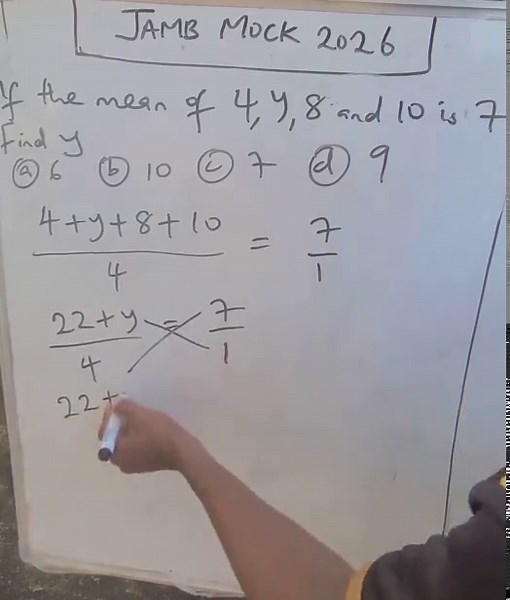 JAMB MOCK 2026
If the mean of 4, y, 8 and 10 is 7
Find y
(a) 6 (b) 10 (c) 7 (d) 9
4+y+8+10 = 7
4 1
22+y = 7
4 1
22+